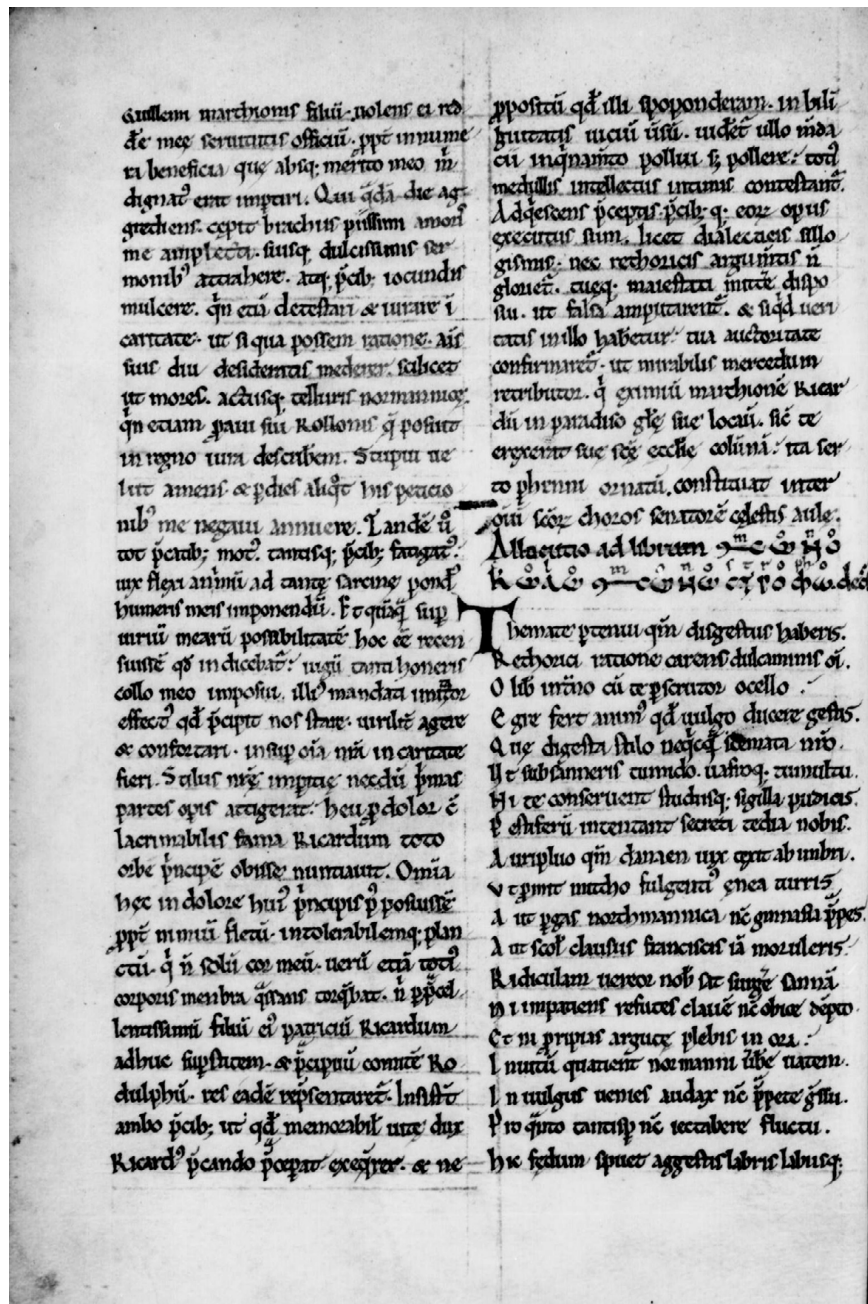 Guillelmi marchionis filiū. uolens ei red
dˀe meę seruitutis officiū. ꝓpt̄ innume
ra beneficia que absq; merito meo m̄
dignatꝰ erat imptiri. Qui q̄dā die ag
grediens. cepit brachiis piissimi amoris
me amplecti. suisq; dulcissimis ser
monibꝰ attrahere. atq; p̄cib; iocundis
mulcere. q̄n etiā detestari & iurare ī
caritate. ut si qua possem ratione. aīs
suis diu desideratis mederer. scilicet
ut mores. actusq; telluris normannicę.
q̄n etiam ꝓaui sui Rollonis q̄ posuit
in regno iura describerem. Stupui ue
lut amens. & ꝑ dies aliq̄t his peticio
nibꝰ me negaui annuere. Tandē ū
tot p̄catib; motꝰ. tantisq; p̄cib; fatigatꝰ.
uix flexi animū ad tantę sarcine pondꝰ
humeris meis imponendū. Et quāquā suꝑ
uiriū mearū possibilitatē hoc eē recen
suissē qđ indicebat̄. iugū tanti honeris
collo meo imposui. illiꝰ mandati imitator
effectꝰ qđ p̄cipit nos stare. uirilit̄ agere
& confortari. insuꝑ oīa nr̄a in caritate
fieri. Stilus nr̄ę imꝑitię necdū p̄mas
partes opis attigerat. heu ꝓ dolor cū
lacrimabilis fama Ricardum toto
orbe p̄ncipē obisse nuntiauit. Omīa
hęc in dolore huiꝰ p̄ncipis pꝰ posuissē
ꝓpt̄ nimiū fletū. intolerabilemq; plan
ctū. q̄ n̄ solū cor meū. uerū etiā totiꝰ
corporis menbra q̄ssans torq̄bat. n̄ ꝑ p̄cel
lentissimū filiū eiꝰ patriciū Ricardum
adhuc suꝑstitem. & p̄cipuū comitē Ro
dulphū. res eadē rep̄sentaret̄. Insistūt
ambo p̄cib; ut qđ memorabil uitę dux
Ricardꝰ p̄cando p̄ceꝑat exeq̄rer. & ne
ꝓpositū qđ illi spoponderam. in bili
guitatis uiciū ūsū. uideret̄ ullo m̄da
cii inq̄nam̄to pollui s; pollere. totiꝰ
medullis intellectus intimis contestant̄.
Adq̄escens p̄ceptis p̄cib; q; eorꝝ opus
executus sum. licet dialecticis sillo
gismis. nec rethoricis argum̄tis n̄
gloriet̄. tuęq; maiestati mittˀe dispo
sui. ut falsa amputarent̄. & siq̄d ueri
tatis in illo habetur. tua auctoritate
confirmaret̄. ut mirabilis mercedum
retributor. q̄ eximiū marchionē Ricar
dū in paradiso glę sue locaū. sic̄ te
erexerit sue sc̄ę ecclie colūnā. ita ser
to ꝑhenni ornatū. constituat inter
oīū sc̄orꝝ choros senatorē cęlestis aule.
Allocutio ad librum
Themate ꝑtenui qm̄ disgestus haberis.
Rethorici ratione carens dulcaminis oī.
O lib in̄tno cū te ꝑscrutor ocello.
Egre fert animꝰ qđ uulgo ducere gestis.
Que digesta stilo neq̄cq̄ scemata nr̄o.
Ut subsanneris tumido. uafroq; tumultu.
Ni te conseruent studiisq; sigilla pudicis.
Pestiferū intentant secreti tedia nobis.
Auripluo qm̄ danaen uix texit ab imbri.
Vt ꝑmit mitho fulgentiꝰ ęnea turris.
Aut ꝑgas northmannica nc̄ gimnasia p̄pes.
Aut scol clausus franciscis iā moruleris.
Ridiculam uereor nob sat surgˀe sannā
Ni impatiens refutes clauē nc̄ obice dēpto
Et ni ꝓripias argutę plebis in ora.
Inuitū quatient normanni ūbˀe uatem.
In uulgus uenies audax nc̄ p̄pete gssu.
Pro q̄nto tantisꝑ nc̄ iectabere fluctu.
Hic fędum spuet aggestis labris labiisq;